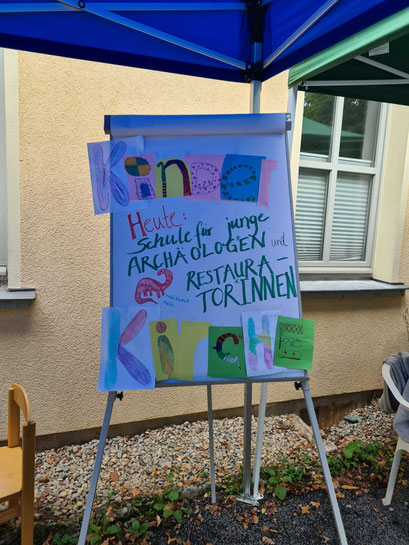 Kinder
Heute:
Schule für junge
ARCHÄOLOGEN und
RESTAURA-
TOR*INNEN
Kirche